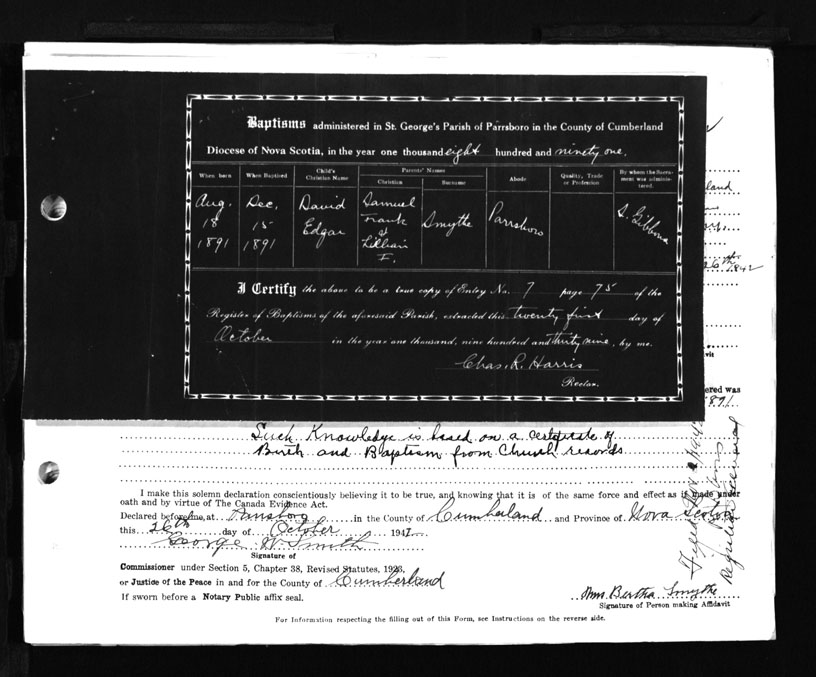 Baptisms administered in St. George's Parish of Parrsboro in the County of Cumberland
Diocese of Nova Scotia, in the year one thousand eight hundred and ninety one.
When born
When Baptized
Child's Christian Name
Parents' Names
Christian
Surname
Abode
Quality, Trade or Profession
By whom the Sacrament was administered.
Aug. 18 1891
Dec. 15 1891
David Edgar
Samuel Frank & Lillian F.
Smythe
Parrsboro
S. Gibbons
I Certify the above to be a true copy of Entry No. 7 page 75 of the
Register of Baptisms of the aforesaid Parish, extracted this twenty first day of
October in the year one thousand, nine hundred and thirty nine, by me.
Chas. R. Harris
Rector.
land
26th
1942
vit
ered was
1891
Such Knowledge is based on a certificate of
Birth and Baptism from Church records
I make this solemn declaration conscientiously believing it to be true, and knowing that it is of the same force and effect as if made under
oath and by virtue of The Canada Evidence Act.
Declared before me at Parrsboro in the County of Cumberland and Province of Nova Scotia
this 26th day of October 194
George W. Smith
Signature of
Commissioner under Section 5, Chapter 38, Revised Statutes, 1923,
or Justice of the Peace in and for the County of Cumberland
If sworn before a Notary Public affix seal.
Mrs. Bertha Smythe
Signature of Person making Affidavit
For Information respecting the filling out of this Form, see Instructions on the reverse side.